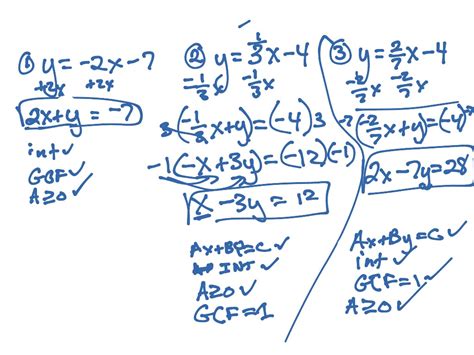 ① y = -2x - 7
+2x +2x
2x + y = -7
int ✓
GCF ✓
A≥0 ✓
② y = 1/3 x - 4
-1/3 x -1/3 x
3(-1/3 x + y) = (-4)3
-1(-x + 3y) = (-12)(-1)
x - 3y = 12
Ax + By = C ✓
INT ✓
A≥0 ✓
GCF = 1 ✓
③ y = 2/7 x - 4
-2/7 x -2/7 x
-7(-2/7 x + y) = (-4)-7
2x - 7y = 28
Ax + By = C ✓
int ✓
GCF = 1 ✓
A≥0 ✓